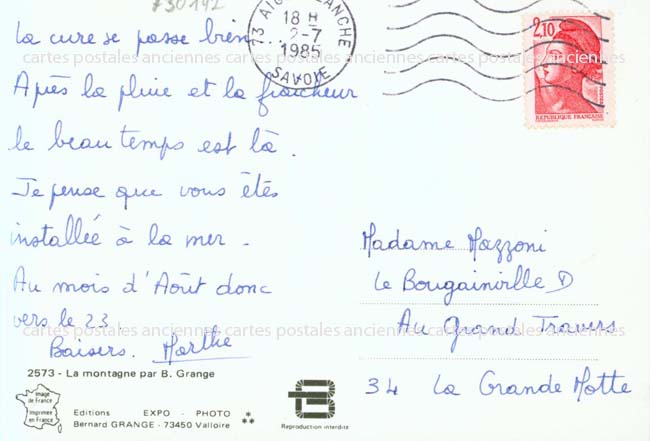 730142
La cure se passe bien.
Après la pluie et la fraîcheur
le beau temps est là.
Je pense que vous êtes
installée à la mer.
Au mois d'Août donc
vers le 23.
Baisers. Marthe
73 AIGUEBLANCHE
18 H
2-7
1985
SAVOIE
2,10
REPUBLIQUE FRANÇAISE
Madame Mazzoni
Le Bougainville D
Au Grand Travers
34 La Grande Motte
cartes postales anciennes cartes postales anciennes cartes postales anciennes
cartes postales anciennes cartes postales anciennes cartes postales anciennes
2573 - La montagne par B. Grange
Image
de France
Imprimée
en France
Editions EXPO - PHOTO * **
Bernard GRANGE - 73450 Valloire
Reproduction interdite